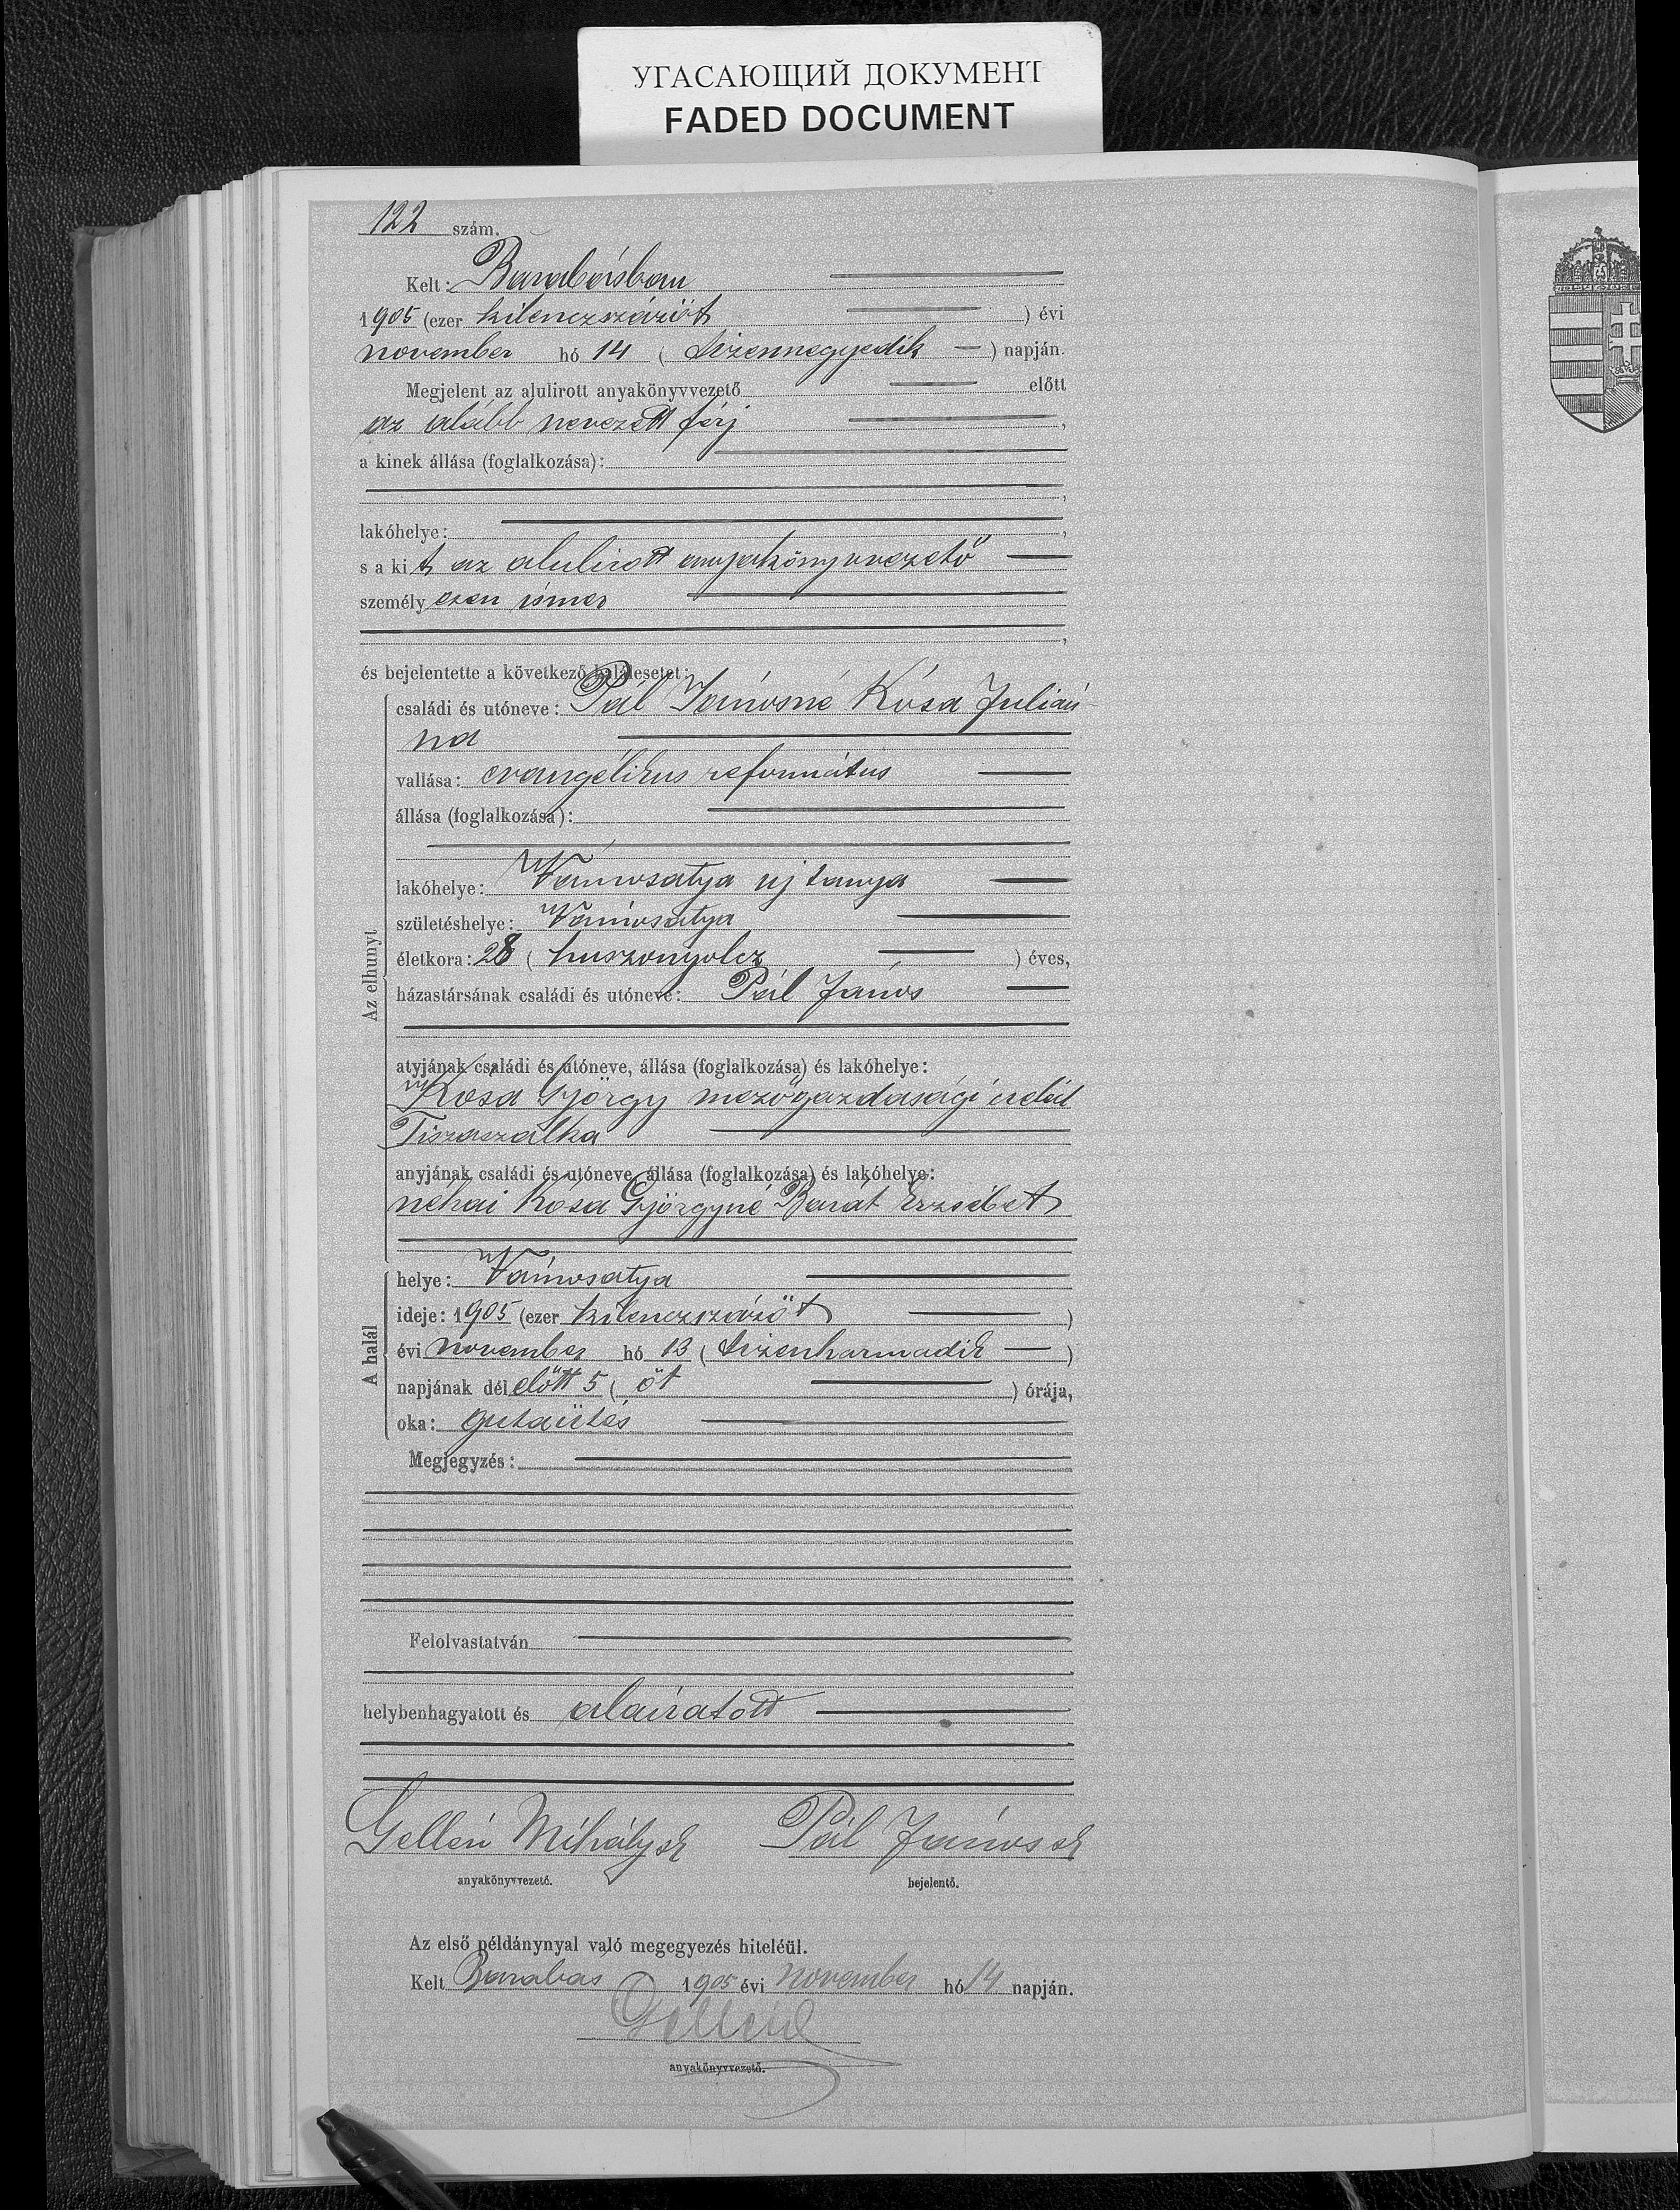 УГАСАЮЩИЙ ДОКУМЕНТ
FADED DOCUMENT
122 szám.
Kelt: Barabásban
1905 (ezer kilenczszázöt ) évi
november hó 14 ( tizennegyedik ) napján.
Megjelent az alulirott anyakönyvvezető előtt
az alább nevezett férj ,
a kinek állása (foglalkozása):
,
lakóhelye: ,
s a kit az alulirott anyakönyvvezető
személyesen ismer
,
és bejelentette a következő halálesetet:
családi és utóneve: Pál Jánosné Kósa Julián-
na
vallása: evangélikus református
állása (foglalkozása):
lakóhelye: Vámosatya uj tanya
születéshelye: Vámosatya
életkora: 28 ( huszonyolcz ) éves,
Az elhunyt
házastársának családi és utóneve: Pál János
atyjának családi és utóneve, állása (foglalkozása) és lakóhelye:
Kósa György mezőgazdasági
Tiszaszalka
anyjának családi és utóneve, állása (foglalkozása) és lakóhelye:
néhai Kósa Györgyné Barát Erzsébet
helye: Vámosatya
ideje: 1905 (ezer kilenczszázöt )
A halál
évi november hó 13 ( tizenharmadik )
napjának délelőtt 5 ( öt ) órája,
oka: gutaütés
Megjegyzés:
Felolvastatván
helybenhagyatott és aláiratott
Gelléri Mihály sk Pál János sk
anyakönyvvezető. bejelentő.
Az első példánynyal való megegyezés hiteléül.
Kelt Barabás 1905 évi november hó 14 napján.
anyakönyvvezető.